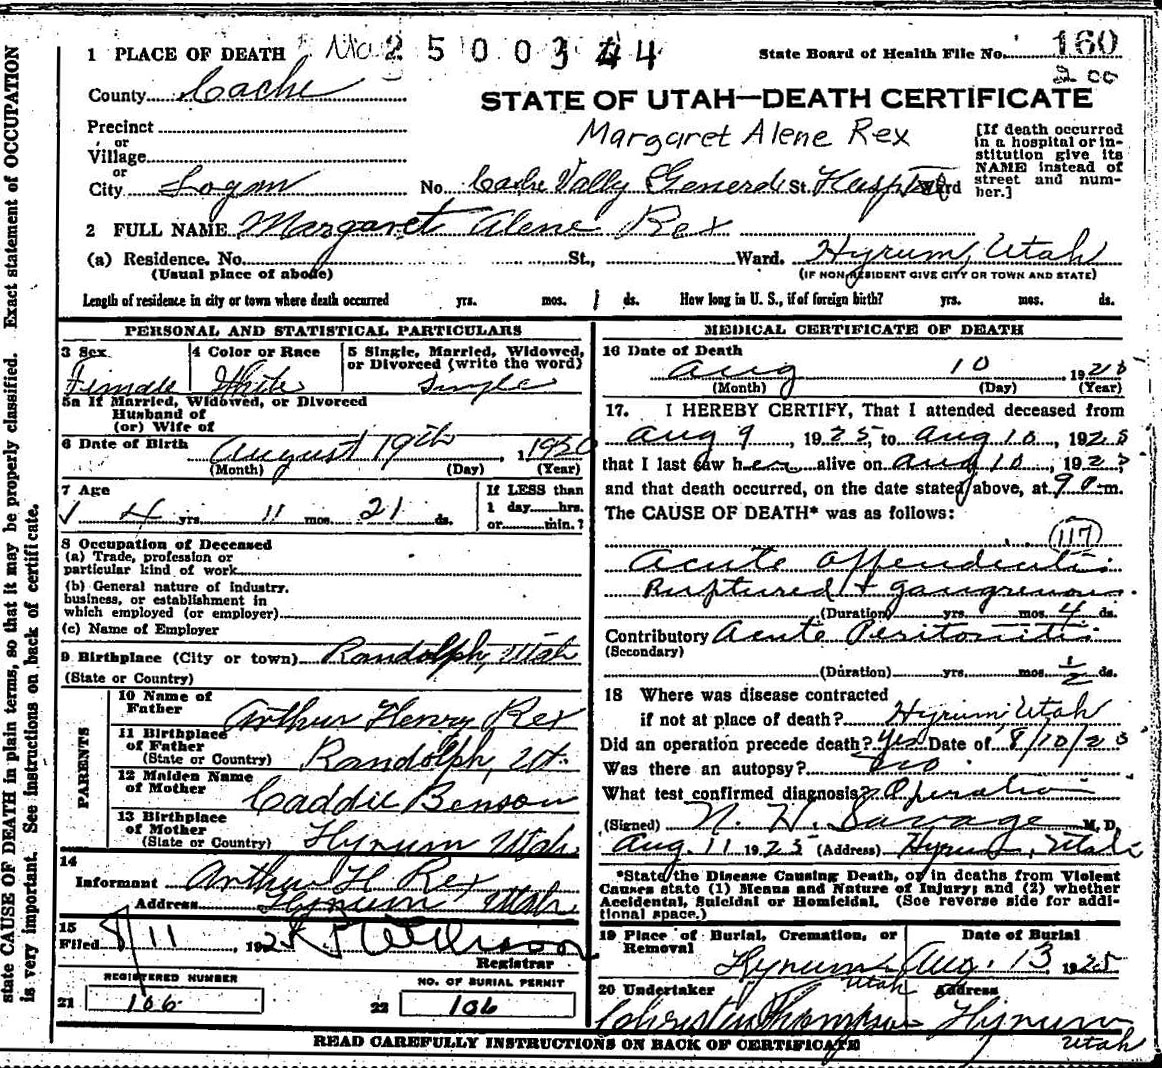 1 PLACE OF DEATH Ma 25 00344 State Board of Health File No. 160
200
County Cache STATE OF UTAH—DEATH CERTIFICATE
Precinct Margaret Alene Rex [If death occurred in a hospital or institution give its NAME instead of street and number.]
or
Village
or
City Logan No. Cache Vally General St. Hospital Ward
2 FULL NAME Margaret Alene Rex
(a) Residence. No. St., Ward. Hyrum, Utah
(Usual place of abode) (IF NON-RESIDENT GIVE CITY OR TOWN AND STATE)
Length of residence in city or town where death occurred yrs. mos. 1 ds. How long in U. S., if of foreign birth? yrs. mos. ds.
PERSONAL AND STATISTICAL PARTICULARS
3 Sex 4 Color or Race 5 Single, Married, Widowed, or Divorced (write the word)
Female White Single
5a If Married, Widowed, or Divorced
Husband of
(or) Wife of
6 Date of Birth August 19th 1920
(Month) (Day) (Year)
7 Age If LESS than
4 yrs. 11 mos. 21 ds. 1 day hrs.
or min.?
8 Occupation of Deceased
(a) Trade, profession or
particular kind of work
(b) General nature of industry,
business, or establishment in
which employed (or employer)
(c) Name of Employer
9 Birthplace (City or town) Randolph, Utah
(State or Country)
PARENTS
10 Name of
Father Arthur Henry Rex
11 Birthplace
of Father
(State or Country) Randolph, Ut.
12 Maiden Name
of Mother Caddie Benson
13 Birthplace
of Mother
(State or Country) Hyrum Utah
14
Informant Arthur H Rex
Address Hyrum Utah
15
Filed 8/11, 1925
Registrar
REGISTERED NUMBER NO. OF BURIAL PERMIT
21 106 22 106
MEDICAL CERTIFICATE OF DEATH
16 Date of Death
Aug 10 1925
(Month) (Day) (Year)
17. I HEREBY CERTIFY, That I attended deceased from
Aug 9, 1925, to Aug 10, 1925
that I last saw her alive on Aug 10, 192
and that death occurred, on the date stated above, at 9 m.
The CAUSE OF DEATH* was as follows:
117
Acute Appendicitis
Ruptured + gangrenous.
(Duration) yrs. mos. 4 ds.
Contributory Acute Peritonitis
(Secondary)
(Duration) yrs. mos. 1/2 ds.
18 Where was disease contracted
if not at place of death? Hyrum, Utah
Did an operation precede death? Yes Date of 8/10/25
Was there an autopsy? no.
What test confirmed diagnosis? Operation
(Signed) N. W. Savage M. D.
Aug. 11 1925 (Address) Hyrum, Utah
*State the Disease Causing Death, or in deaths from Violent
Causes state (1) Means and Nature of Injury; and (2) whether
Accidental, Suicidal or Homicidal. (See reverse side for addi-
tional space.)
19 Place of Burial, Cremation, or Removal Date of Burial
Hyrum Utah Aug. 13 1925
20 Undertaker Address
Thompson Hyrum
Utah
READ CAREFULLY INSTRUCTIONS ON BACK OF CERTIFICATE
state CAUSE OF DEATH in plain terms, so that it may be properly classified. Exact statement of OCCUPATION
is very important. See instructions on back of certificate.